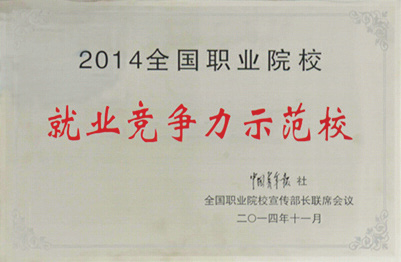 2014全国职业院校
就业竞争力示范校
中国青年报 社
全国职业院校宣传部长联席会议
二〇一四年十一月